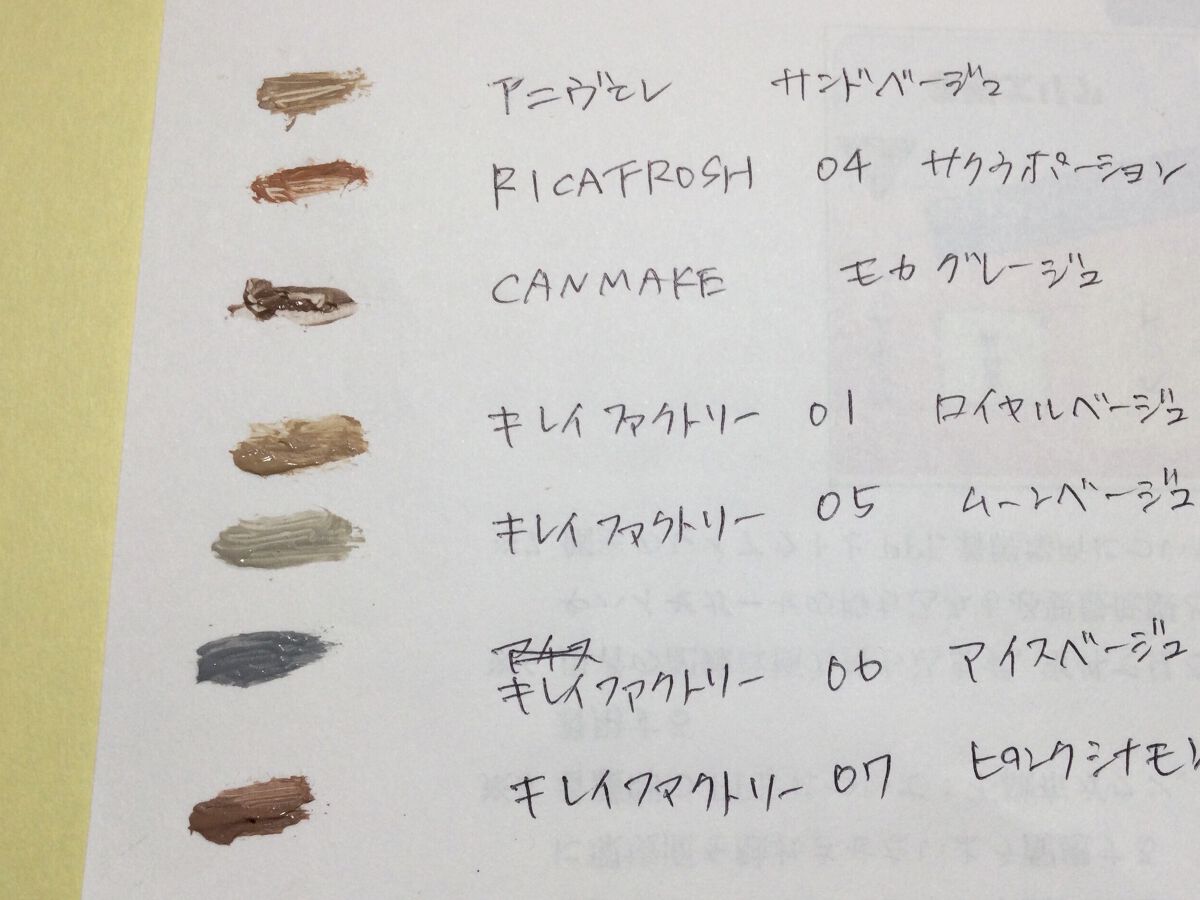 アニヴェレ サンドベージュ
RICAFROSH 04 サクラポーション
CANMAKE モカグレージュ
キレイファクトリー 01 ロイヤルベージュ
キレイファクトリー 05 ムーンベージュ
キレイファクトリー 06 アイスベージュ
キレイファクトリー 07 ピンクシナモン